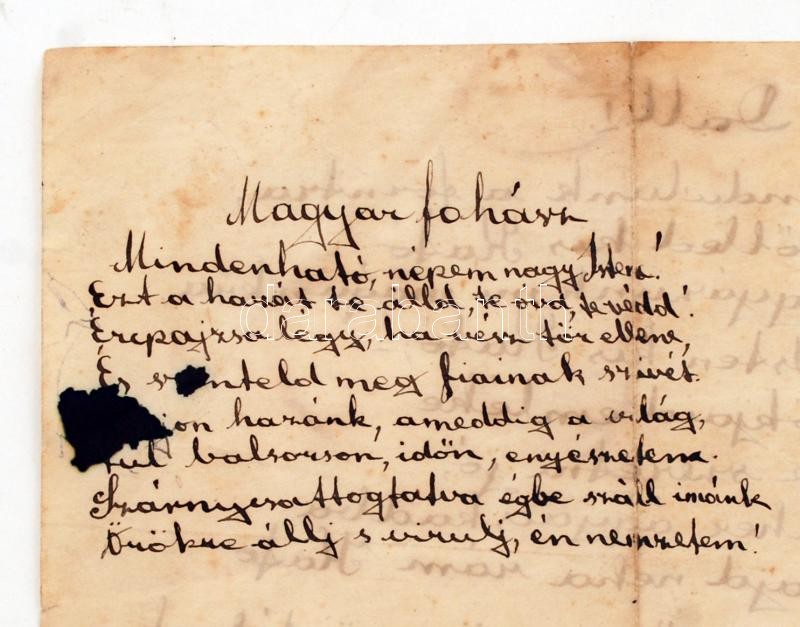 Magyar fohász
Mindenható, népem nagy Istene!
Ezt a hazát te áldd, te óvd, te védd!
Ércpajzsa légy, ha vész tör ellene,
És szenteld meg fiainak szivét.
hazánk, ameddig a világ,
túl balsorson, időn, enyészeten.
Szárnycsattogtatva égbe száll imánk
Örökre állj s virulj, én nemzetem!
darabanth